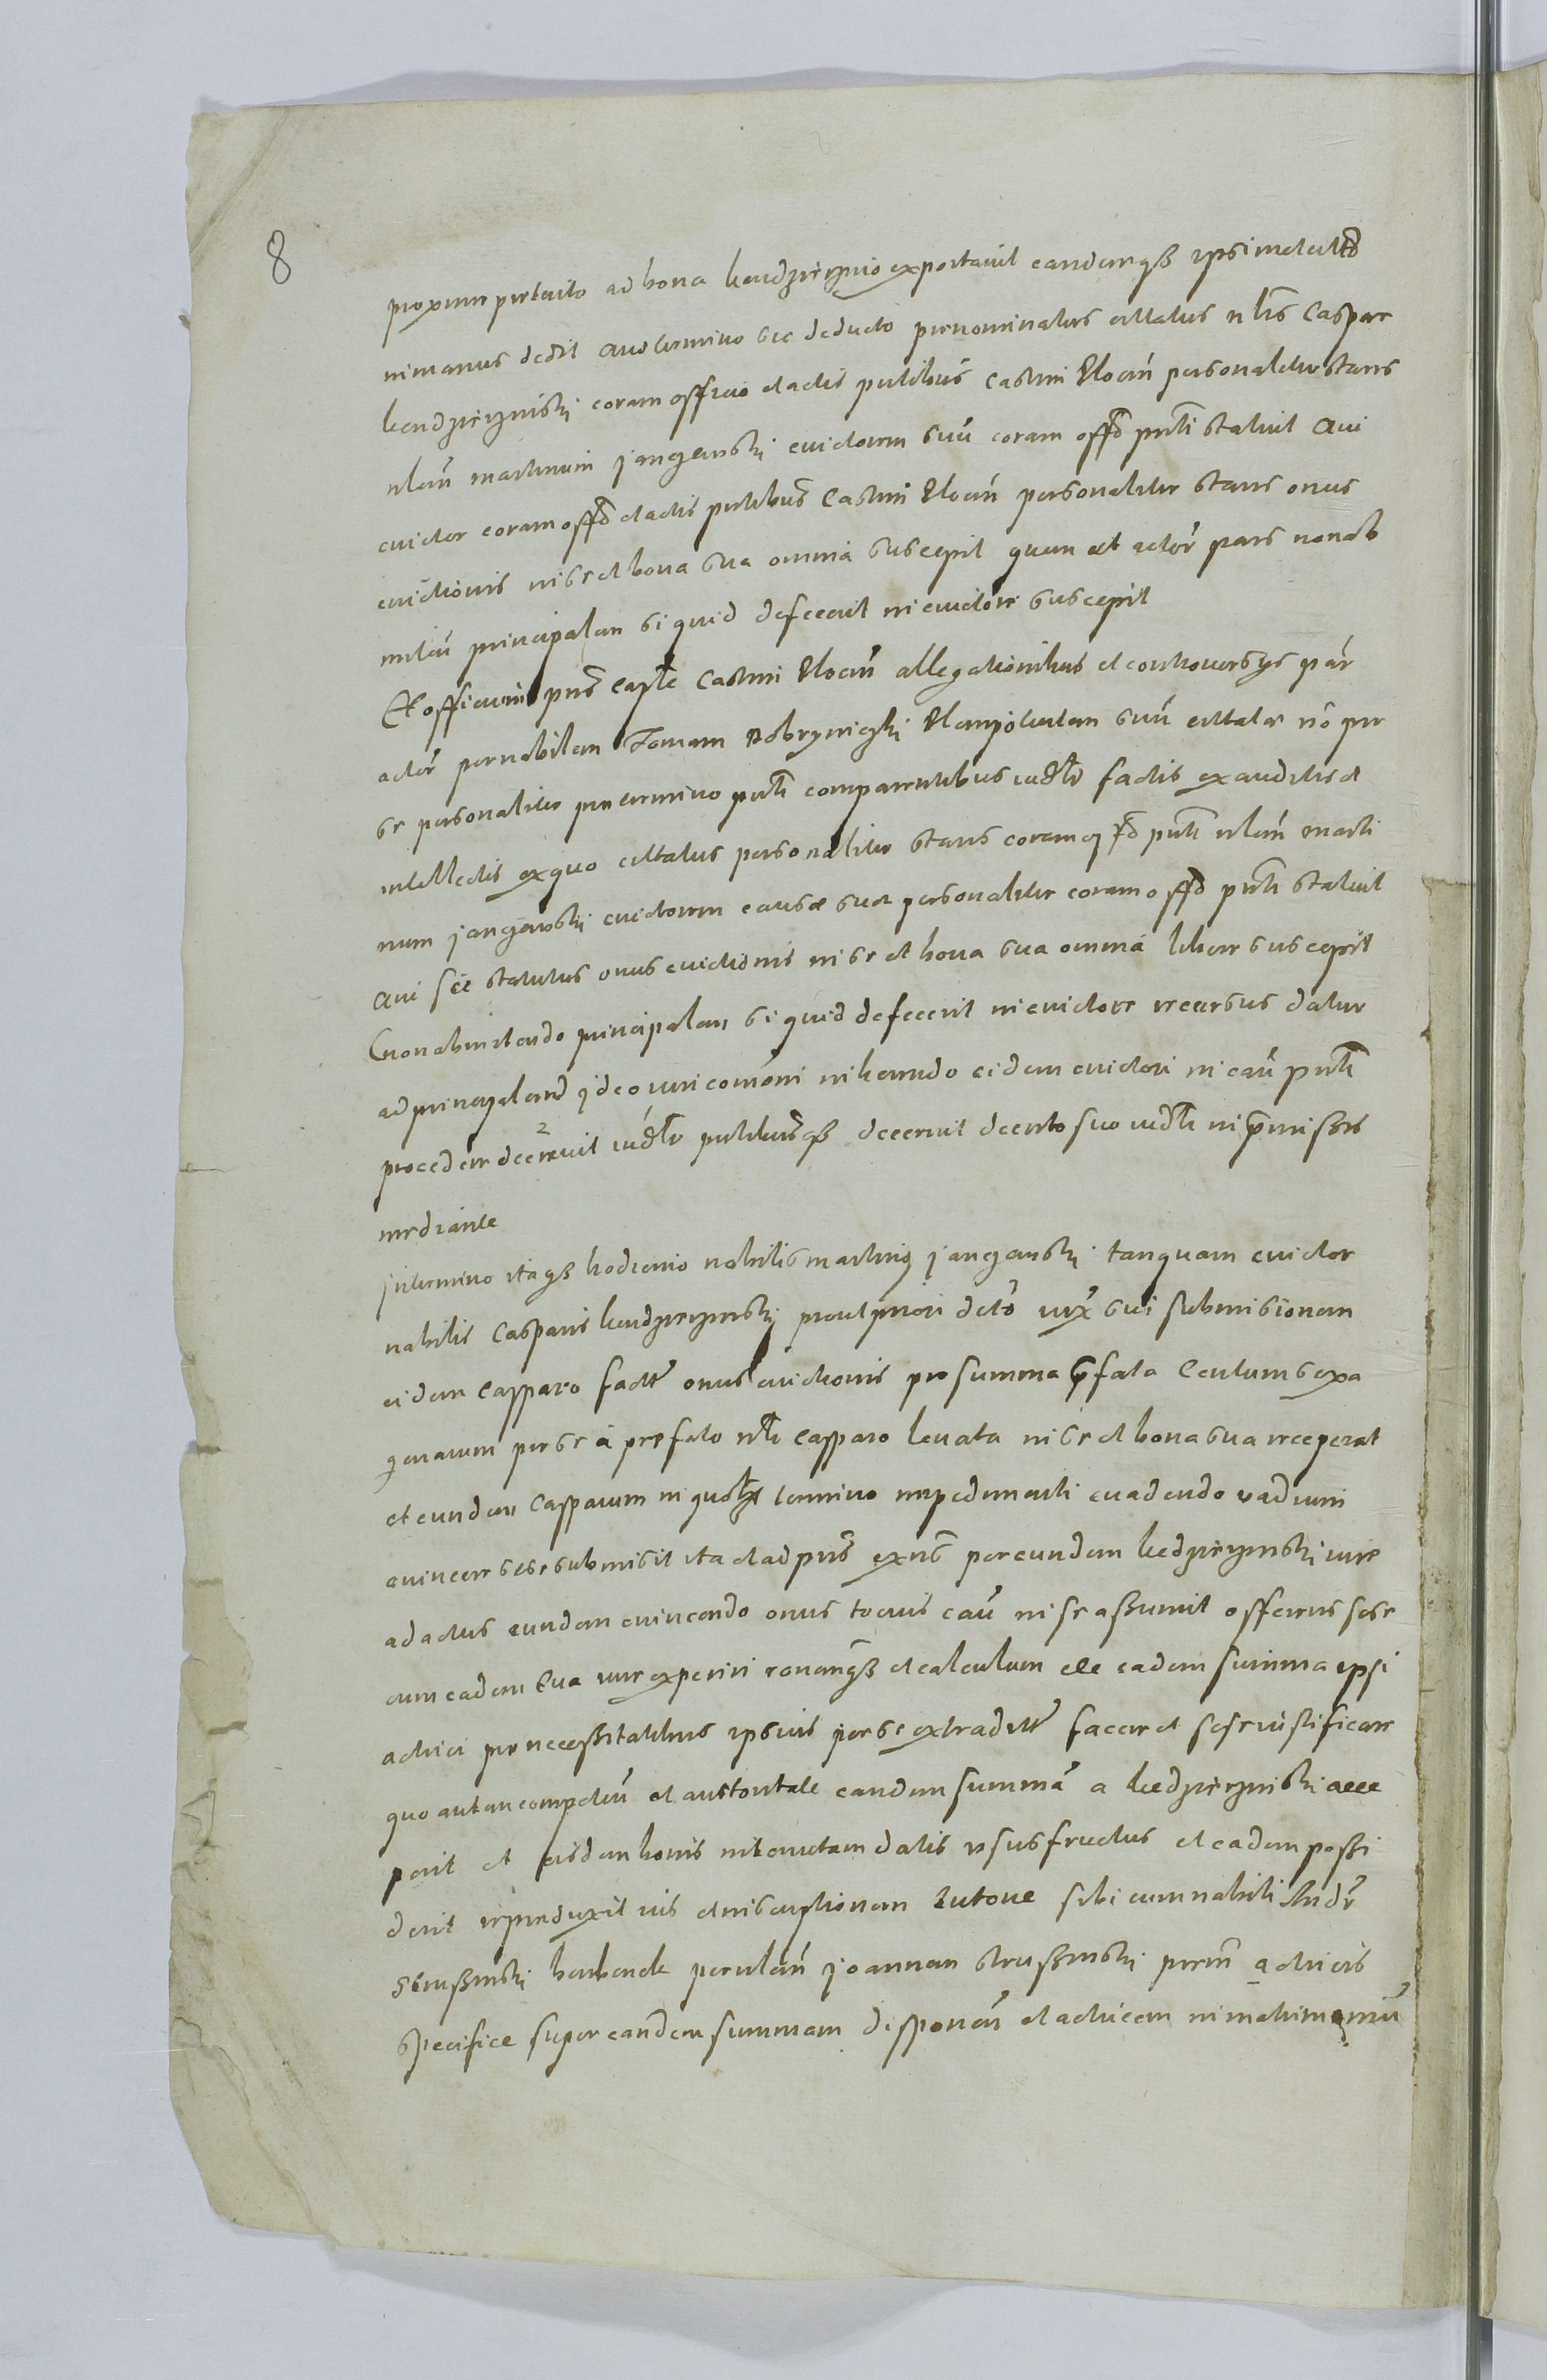 8
proxime preterito ad bona kendzierzyno exportavit eandemqȝ ipsimet citato
in manus dedit Quo termino sic deducto prenominatus citatus nlis Caspar
kendzierzynski coram officio et actis pntibus Castrn Vlocen personaliter stans
nlem martinum jangenski evictorem suu coram offo pnti statuit Qui
evictor coram offo et actis pntibus Castrn Vlocen personaliter stans onus
evictionis in se et bona sua omnia suscepit quem et actor pars non ob
mitten principalem si quid defecerit in evictore suscepit
Et officium pns caple Castrn Vlocen allegationibus et controversys par
actor per nobilem Tomam Dobryniczki plenipotentem suu citatae vo per
se personaliter pro termino pnti comparentibus iudlr factis exauditis et
intellectis ex quo citatus personaliter stans coram offo pnti nlem marti
num jangenski evictorem causae suae personaliter coram offo pnti statuit
Qui sic statutus onus evictionis in se et bona sua omnia libere suscepit
Et non obmittendo principalem si quid defecerit in evictore recursus datur
ad principalem ideo iuri comoni inherendo eidem evictori in cau pnti
procedere decrevit iudlr pntibusqȝ decernit decreto suo iudli in premissis
mediante
jn termino itaqȝ hodierno nobilis martinus jangenski tanquam evictor
nobilis Casparis kendzierzynski prout priori dcto iux sui submisionem
eidem Casparo factt onus evictionis pro summa prefata Centum sexa
genarum per se a prefato nli Casparo levata in se et bona sua receperat
et eundem Casparum in quolzt termino impedimenti evadendo vadium
evincere sese submisit ita et ad pns ex ns per eundem kedzierzynski iure
ad actus eundem evincendo onus tocius cau in se assumit offerens sese
cum eadem sua iure experiri ronemqȝ et calculum ele eadem summa ipsi
actrici pro necessitatibus ipsius per se extraditt facere et sese iustificare
quo autem competen et auctoritate eandem summa a kedzierzynski acce
perit et eisdem bonis in tenutam datis ususfructus et eadem possi
derit reproduxit ius et inscriptionem tutone sibi cum nobili Andr
strussinski habende per nlem joannem strussinski prem actricis
specifice super eandem summam disponen et actricem in matrimoniu